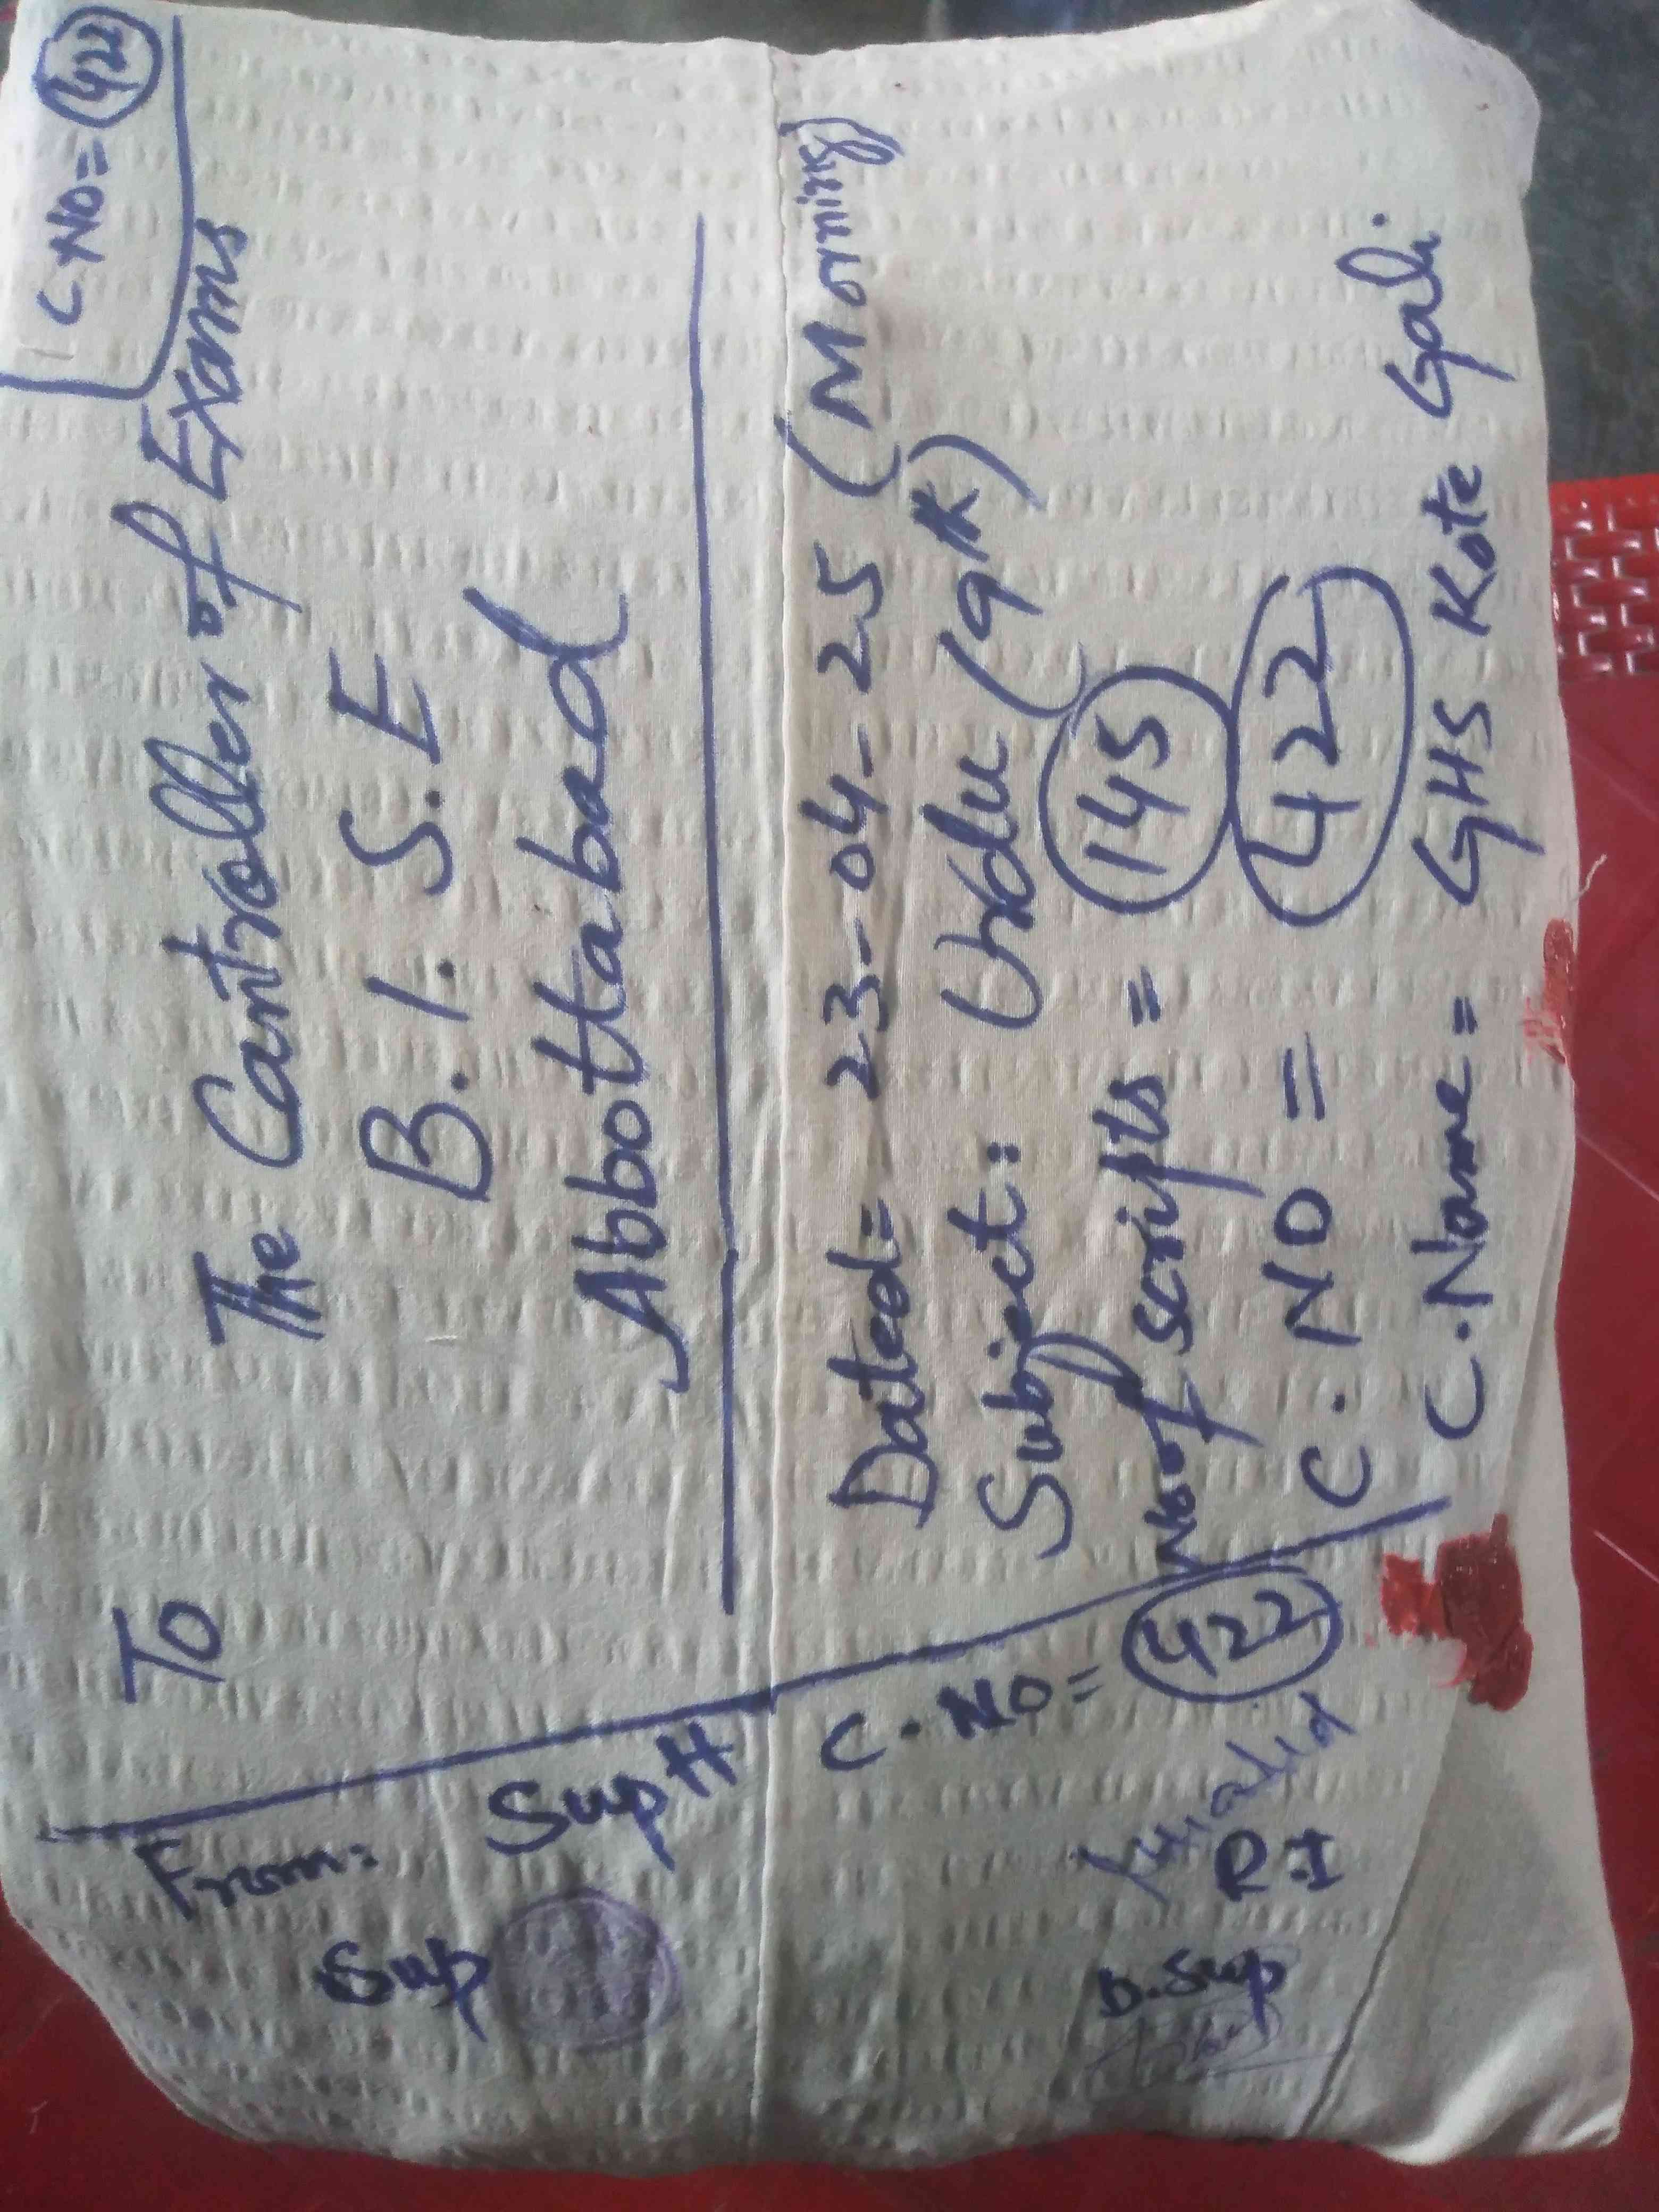 C.NO= 422
To
The Controller of Exams
B.I.S.E
Abbottabad
Dated= 23-04-25 (Morning)
Subject: Urdu (9th)
No of scripts = 145
C.NO = 422
C.Name= GHS Kote Gali.
From:
Sup H
Sup
C.NO= 422
R.I
D.Sup